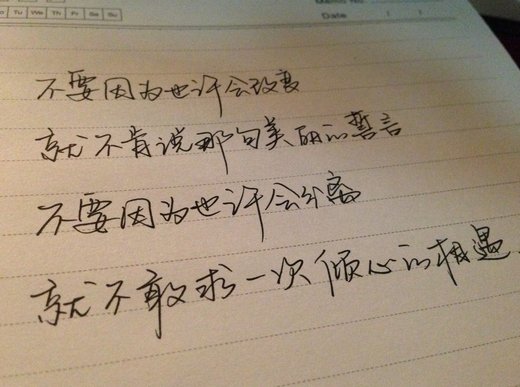 Memo No.
Tu We Th Fr Sa Su
Date / /
不要因为也许会改变
就不肯说那句美丽的誓言
不要因为也许会分离
就不敢求一次倾心的相遇